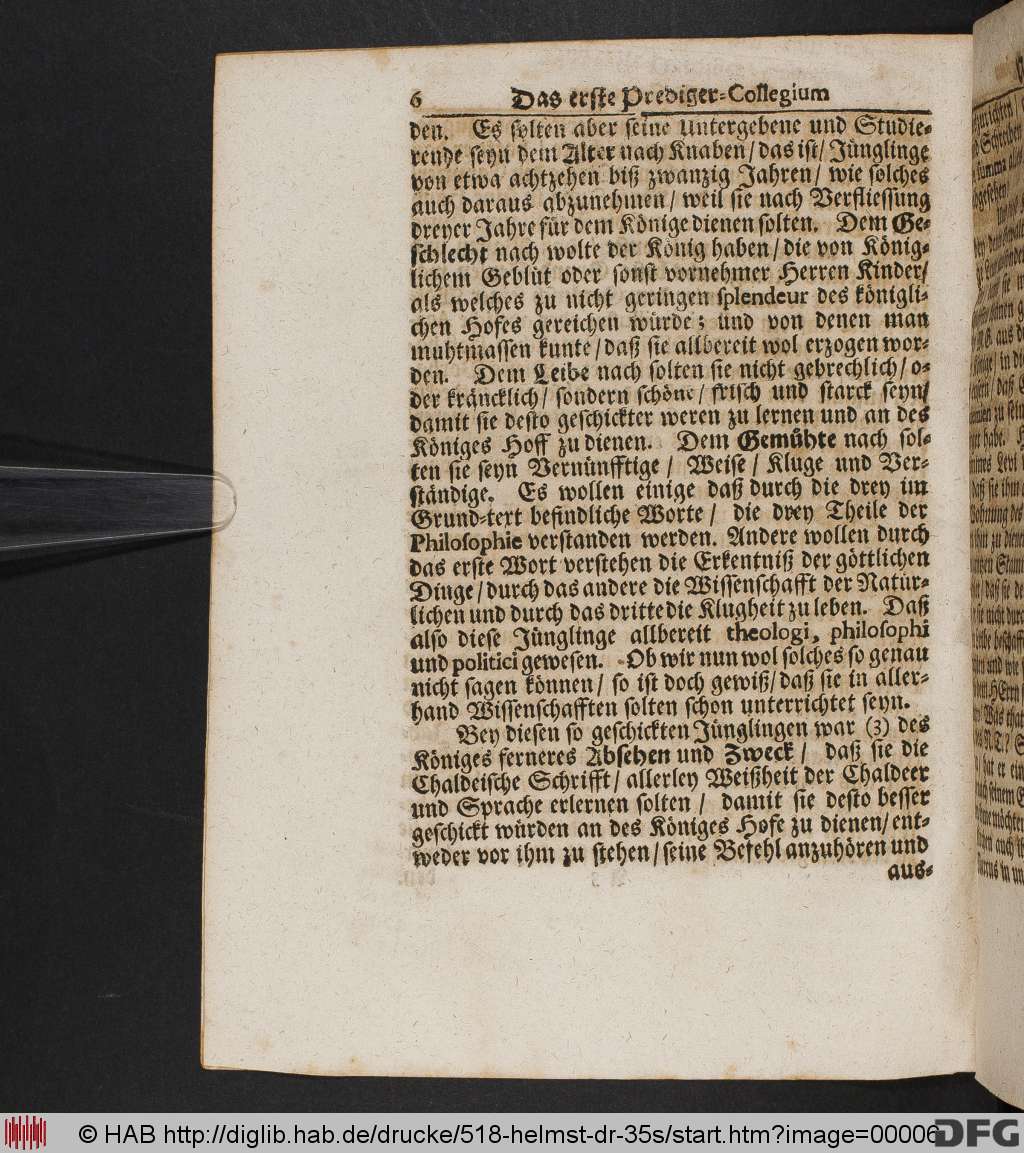 6 Das erste Prediger-Collegium
den. Es solten aber seine Untergebene und Studie-
rende seyn dem Alter nach Knaben/ das ist/ Jünglinge
von etwa achtzehen biß zwanzig Jahren/ wie solches
auch daraus abzunehmen/ weil sie nach Verfliessung
dreyer Jahre für dem Könige dienen solten. Dem Ge-
schlecht nach wolte der König haben/ die von König-
lichem Geblüt oder sonst vornehmer Herren Kinder/
als welches zu nicht geringen splendeur des königli-
chen Hofes gereichen würde; und von denen man
muhtmassen kunte/ daß sie allbereit wol erzogen wor-
den. Dem Leibe nach solten sie nicht gebrechlich/ o-
der kräncklich/ sondern schöne/ frisch und starck seyn/
damit sie desto geschickter weren zu lernen und an des
Königes Hoff zu dienen. Dem Gemühte nach sol-
ten sie seyn Vernünfftige/ Weise/ Kluge und Ver-
ständige. Es wollen einige daß durch die drey im
Grund-text befindliche Worte/ die drey Theile der
Philosophie verstanden werden. Andere wollen durch
das erste Wort verstehen die Erkentniß der göttlichen
Dinge/ durch das andere die Wissenschafft der Natür-
lichen und durch das dritte die Klugheit zu leben. Daß
also diese Jünglinge allbereit theologi, philosophi
und politici gewesen. Ob wir nun wol solches so genau
nicht sagen können/ so ist doch gewiß/ daß sie in aller-
hand Wissenschafften solten schon unterrichtet seyn.
Bey diesen so geschickten Jünglingen war (3) des
Königes ferneres Absehen und Zweck/ daß sie die
Chaldeische Schrifft/ allerley Weißheit der Chaldeer
und Sprache erlernen solten/ damit sie desto besser
geschickt würden an des Königes Hofe zu dienen/ ent-
weder vor ihm zu stehen/ seine Befehl anzuhören und
aus-
© HAB http://diglib.hab.de/drucke/518-helmst-dr-35s/start.htm?image=00006
DFG